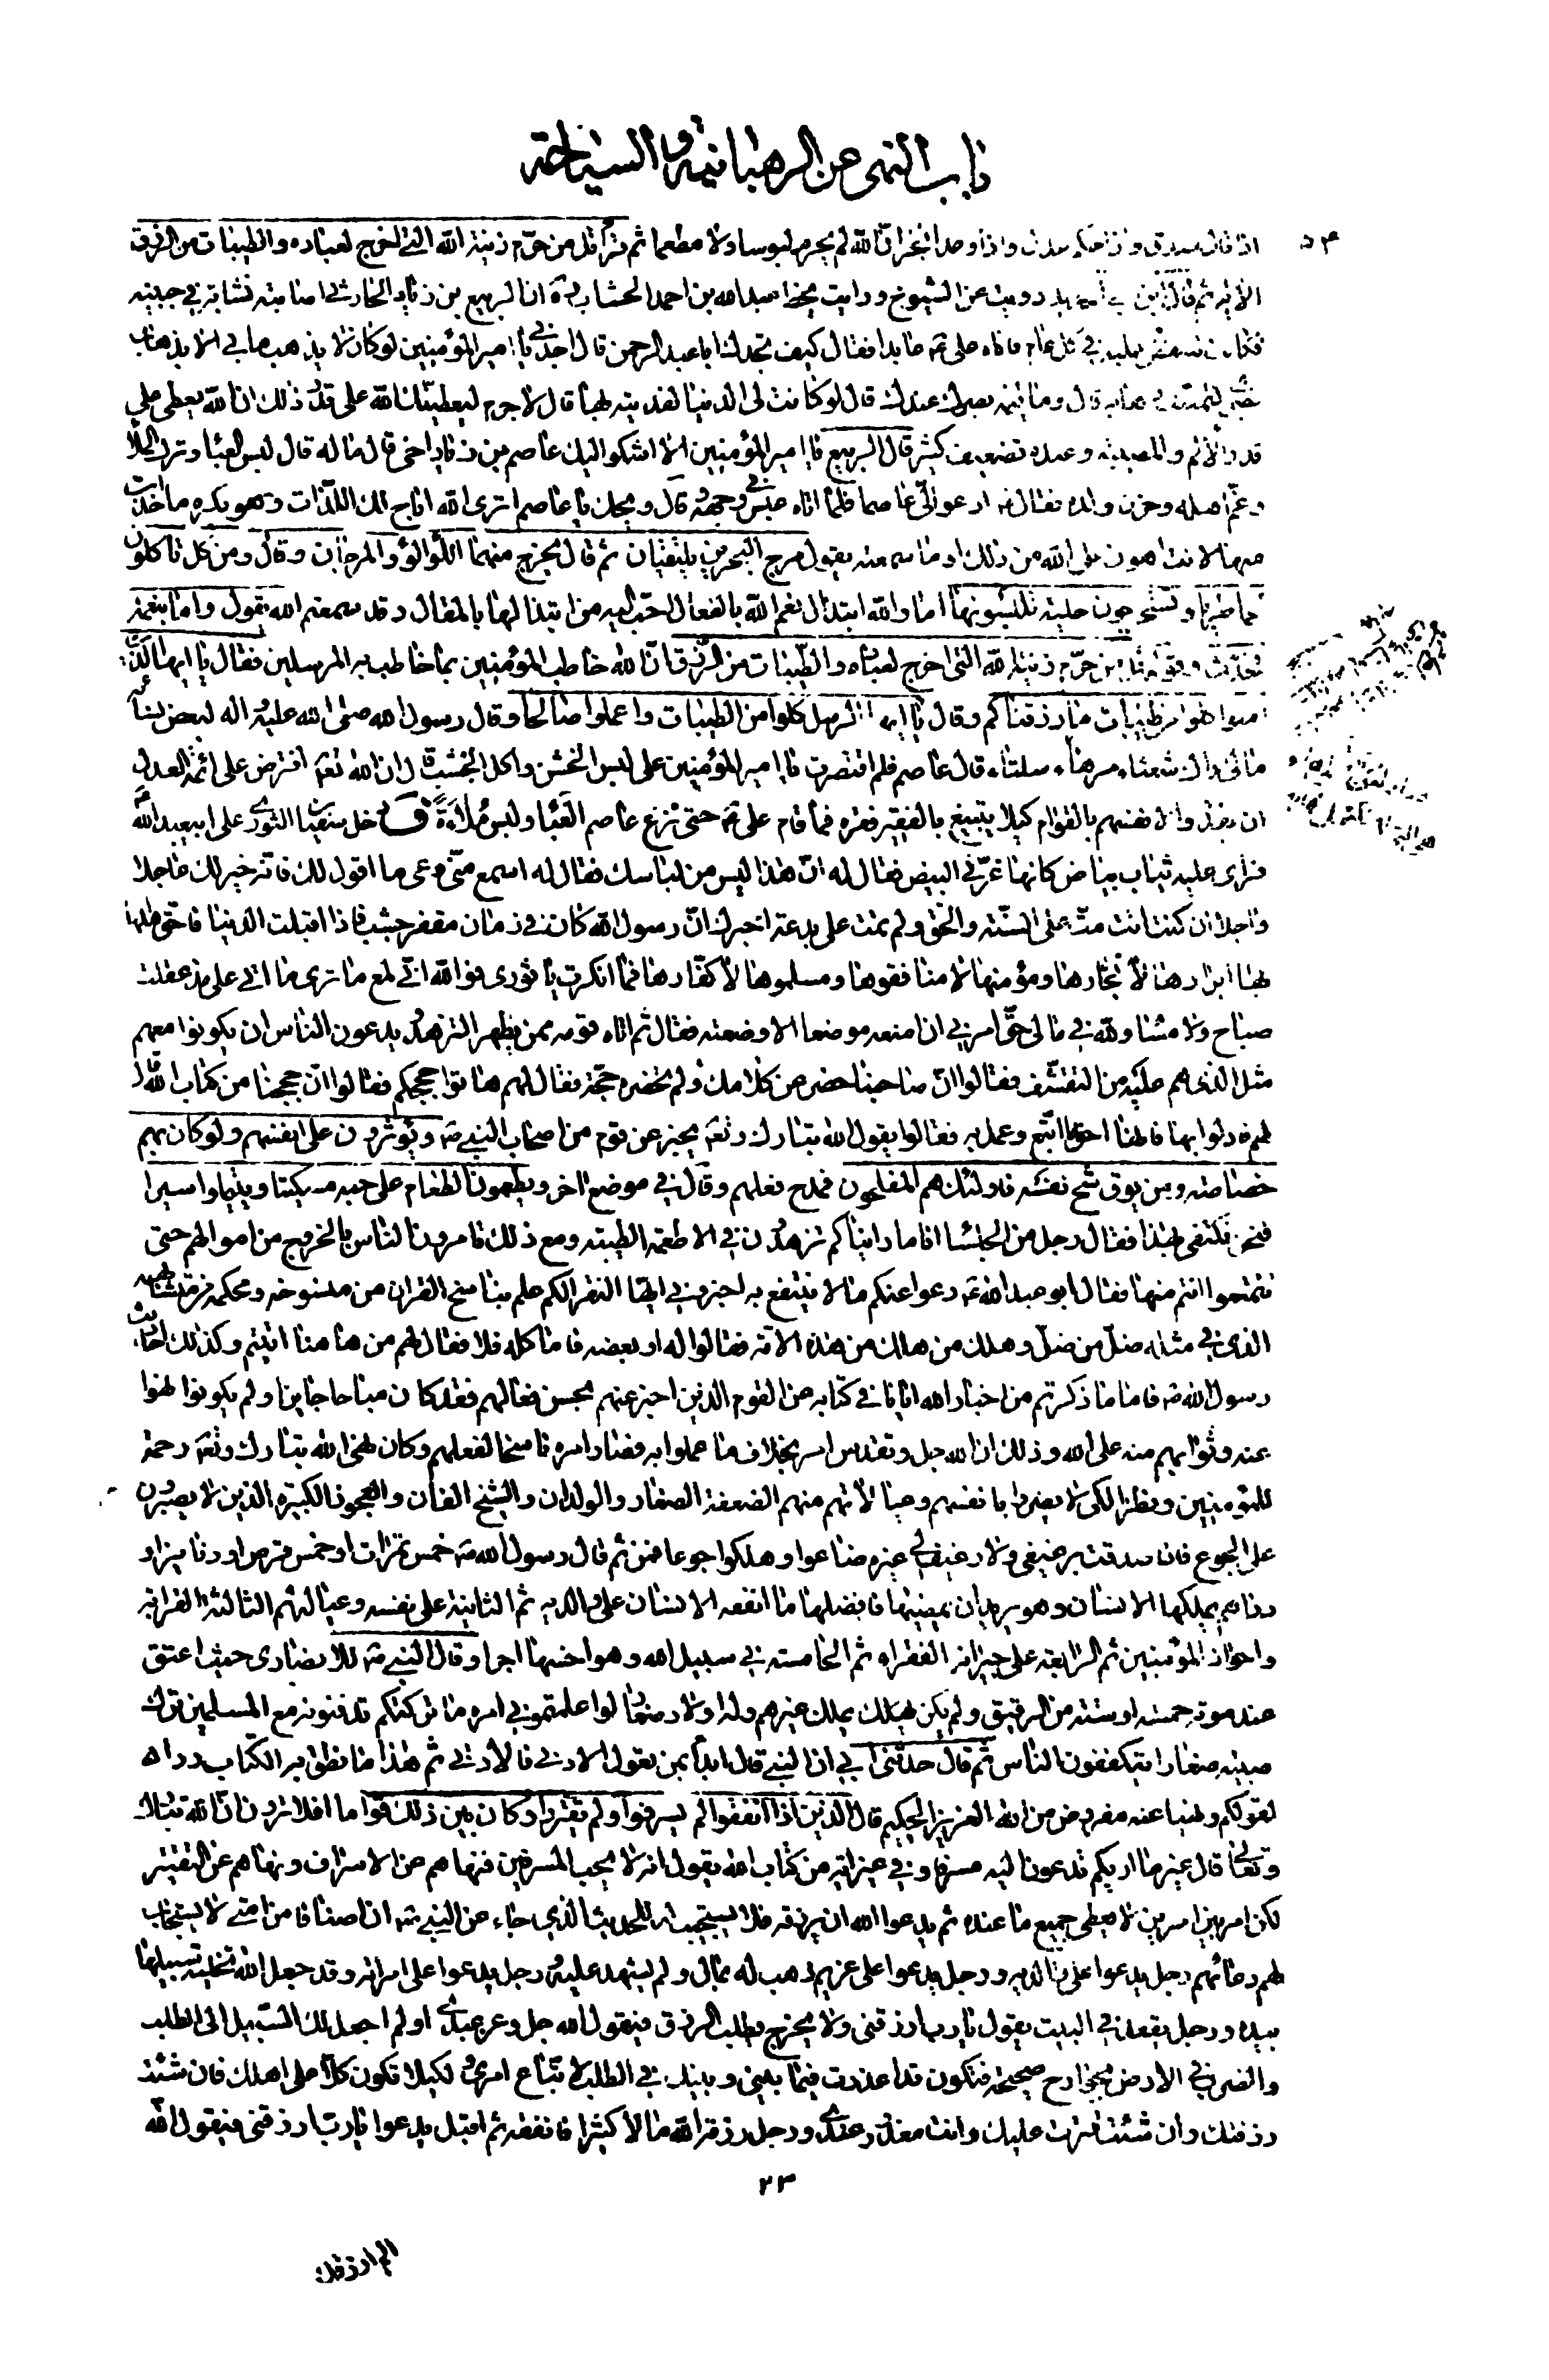 باب النهى عن الرهبانية والسياحة
لم يحرم لبوسا ولا مطعما ثم قرأ قل من حرم زينة الله التي اخرج لعباده والطيبات من الرزق
الاية ثم قال رويت عن الشيوخ ورايت بخط عبدالله بن احمد الخشاب ره ان الربيع بن زياد الحارثي اصابته نشابة في جبينه
فكانت تنتقض عليه في كل عام فاتاه على عم عايدا فقال كيف تجدك ابا عبد الرحمن قال اجدني يا امير المؤمنين لو كان لا يذهب ما بي الا بذهاب
بصري لتمنيت ذهابه قال وما قيمة بصرك عندك قال لو كانت لي الدنيا لفديته بها قال لا جرم ليعطينك الله على قدر ذلك ان الله يعطي على
قدر الالم والمصيبة وعنده تضعيف كثير قال الربيع يا امير المؤمنين الا اشكو اليك عاصم بن زياد اخي قال ما له قال لبس العباء وترك الملاء
وغم اهله وحزن ولده فقال عم ادعوا لي عاصما فلما اتاه عبس في وجهه وقال ويحك يا عاصم اترى الله اباح لك اللذات وهو يكره ما اخذت
منها لانت اهون على الله من ذلك او ما سمعته يقول مرج البحرين يلتقيان ثم قال يخرج منهما اللؤلؤ والمرجان وقال ومن كل تاكلون
لحما طريا وتستخرجون حلية تلبسونها اما والله ابتذال نعم الله بالفعال احب اليه من ابتذالها بالمقال وقد سمعتم الله يقول واما بنعمة
ربك فحدث وقوله من حرم زينة الله التي اخرج لعباده والطيبات من الرزق ان الله خاطب المؤمنين بما خاطب به المرسلين فقال يا ايها الذين
امنوا كلوا من طيبات ما رزقناكم وقال يا ايها الرسل كلوا من الطيبات واعملوا صالحا وقال رسول الله صلى الله عليه واله لبعض نسائه
ما لي اراك شعثاء مرهاء سلتاء قال عاصم فلم اقتصرت يا امير المؤمنين على لبس الخشن واكل الجشب قال ان الله تعم افترض على ائمة العدل
ان يقدروا لانفسهم بالقوام كيلا يتبيغ بالفقير فقره فما قام على عم حتى نزع عاصم العباء ولبس ملاءة دخل سفيان الثوري على ابيعبدالله عم
فراى عليه ثياب بياض كانها غرقئ البيض فقال له ان هذا ليس من لباسك فقال له اسمع مني وع ما اقول لك فانه خير لك عاجلا
واجلا ان كنت انت مت على السنة والحق ولم تمت على بدعة اخبرك ان رسول الله كان في زمان مقفر جشب فاذا اقبلت الدنيا فاحق اهلها
بها ابرارها لا فجارها ومؤمنوها لا منافقوها ومسلموها لا كفارها فما انكرت يا ثوري فوالله اني لمع ما ترى ما اتى علي مذ عقلت
صباح ولا مساء ولله في مالي حق امرني ان اضعه موضعا الا وضعته فقال ثم اتاه قوم ممن يظهر التزهد يدعون الناس ان يكونوا معهم
مثل الذي هم عليه من التقشف فقالوا ان صاحبنا حصر عن كلامك ولم تحضره حجة فقال لهم هاتوا حججكم فقالوا ان حججنا من كتاب الله قال
لهم فادلوا بها فانها احق ما اتبع وعمل به فقالوا يقول الله تبارك وتعم يخبر عن قوم من اصحاب النبي ص ويؤثرون على انفسهم ولو كان بهم
خصاصة ومن يوق شح نفسه فاولئك هم المفلحون فمدح فعلهم وقال في موضع اخر ويطعمون الطعام على حبه مسكينا ويتيما واسيرا
فنحن نكتفي بهذا فقال رجل من الجلساء انا ما رايناكم تزهدون في الاطعمة الطيبة ومع ذلك تامرون الناس بالخروج من اموالهم حتى
تتمتعوا انتم منها فقال ابو عبد الله عم دعوا عنكم ما لا ينتفع به اخبروني ايها النفر الكم علم بناسخ القران من منسوخه ومحكمه من متشابهه
الذي في مثله ضل من ضل وهلك من هلك من هذه الامة فقالوا له او بعضه فاما كله فلا فقال لهم من هاهنا اتيتم وكذلك احاديث
رسول الله ص فاما ما ذكرتم من اخبار الله ايانا في كتابه عن القوم الذين اخبر عنهم بحسن فعالهم فقد كان مباحا جايزا ولم يكونوا نهوا
عنه وثوابهم منه على الله وذلك ان الله جل وتقدس امر بخلاف ما عملوا به فصار امره ناسخا لفعلهم وكان نهى الله تبارك وتعم رحمة
للمؤمنين ونظرا لكي لا يضروا بانفسهم وعيالاتهم منهم الضعفة الصغار والولدان والشيخ الفان والعجوز الكبيرة الذين لا يصبرون
على الجوع فان تصدقت برغيفي ولا رغيف لي غيره ضاعوا وهلكوا جوعا فمن ثم قال رسول الله ص خمس تمرات او خمس قرص او دنانير او
دراهم يملكها الانسان وهو يريد ان يمضيها فافضلها ما انفقه الانسان على والديه ثم الثانية على نفسه وعياله ثم الثالثة القرابة
واخوانه المؤمنين ثم الرابعة على جيرانه الفقراء ثم الخامسة في سبيل الله وهو اخسها اجرا وقال النبي ص للانصاري حيث اعتق
عند موته خمسة او ستة من الرقيق ولم يكن يملك غيرهم وله اولاد صغار لو اعلمتموني امره ما تركتكم تدفنونه مع المسلمين ترك
صبية صغارا يتكففون الناس ثم قال حدثني ابي ان النبي قال ابدأ بمن تعول الادنى فالادنى ثم هذا ما نطق به الكتاب ردا
لقولكم ونهيا عنه مفروض من الله العزيز الحكيم قال الذين اذا انفقوا لم يسرفوا ولم يقتروا وكان بين ذلك قواما افلا ترون ان الله تبارك
وتعالى قال غير ما اريكم تدعون اليه مسرفا وفي غير اية من كتاب الله يقول انه لا يحب المسرفين فنهاهم عن الاسراف ونهاهم عن التقتير
لكن امر بين امرين لا يعطي جميع ما عنده ثم يدعوا الله ان يرزقه فلا يستجيب له للحديث الذي جاء عن النبي ص ان اصنافا من امتي لا يستجاب
لهم دعائهم رجل يدعوا على والديه ورجل يدعوا على غريم ذهب له بمال ولم يشهد عليه ورجل يدعوا على امراته وقد جعل الله تخلية سبيلها
بيده ورجل يقعد في البيت يقول يا رب ارزقني ولا يخرج يطلب الرزق فيقول الله جل وعز عبدي اولم اجعل لك السبيل الى الطلب
والضرب في الارض بجوارح صحيحة فتكون قد اعذرت فيما بيني وبينك في الطلب لاتباع امري لكيلا تكون كلا على اهلك فان شئت
رزقتك وان شئت قترت عليك وانت معذور عندي ورجل رزقه الله مالا كثيرا فانفقه ثم اقبل يدعوا يا رب ارزقني فيقول الله
٢٣
الم ارزقك